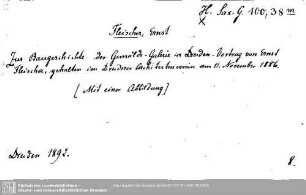 H. Sax. G. 100, 38 m
Fleischer, Ernst
Zur Baugeschichte der Gemälde-Galerie in Dresden. Vortrag von Ernst
Fleischer, gehalten im Dresdner Architektenverein am 11. November 1886.
[Mit einer Abbildung]
Dresden 1892.
8.